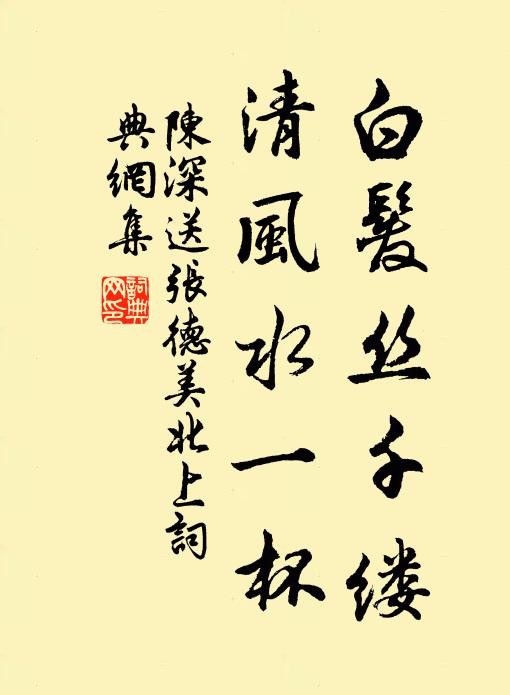 白髮丝千缕
清風水一杯
陳深送張德美北上詞
典網集
詞典
网印